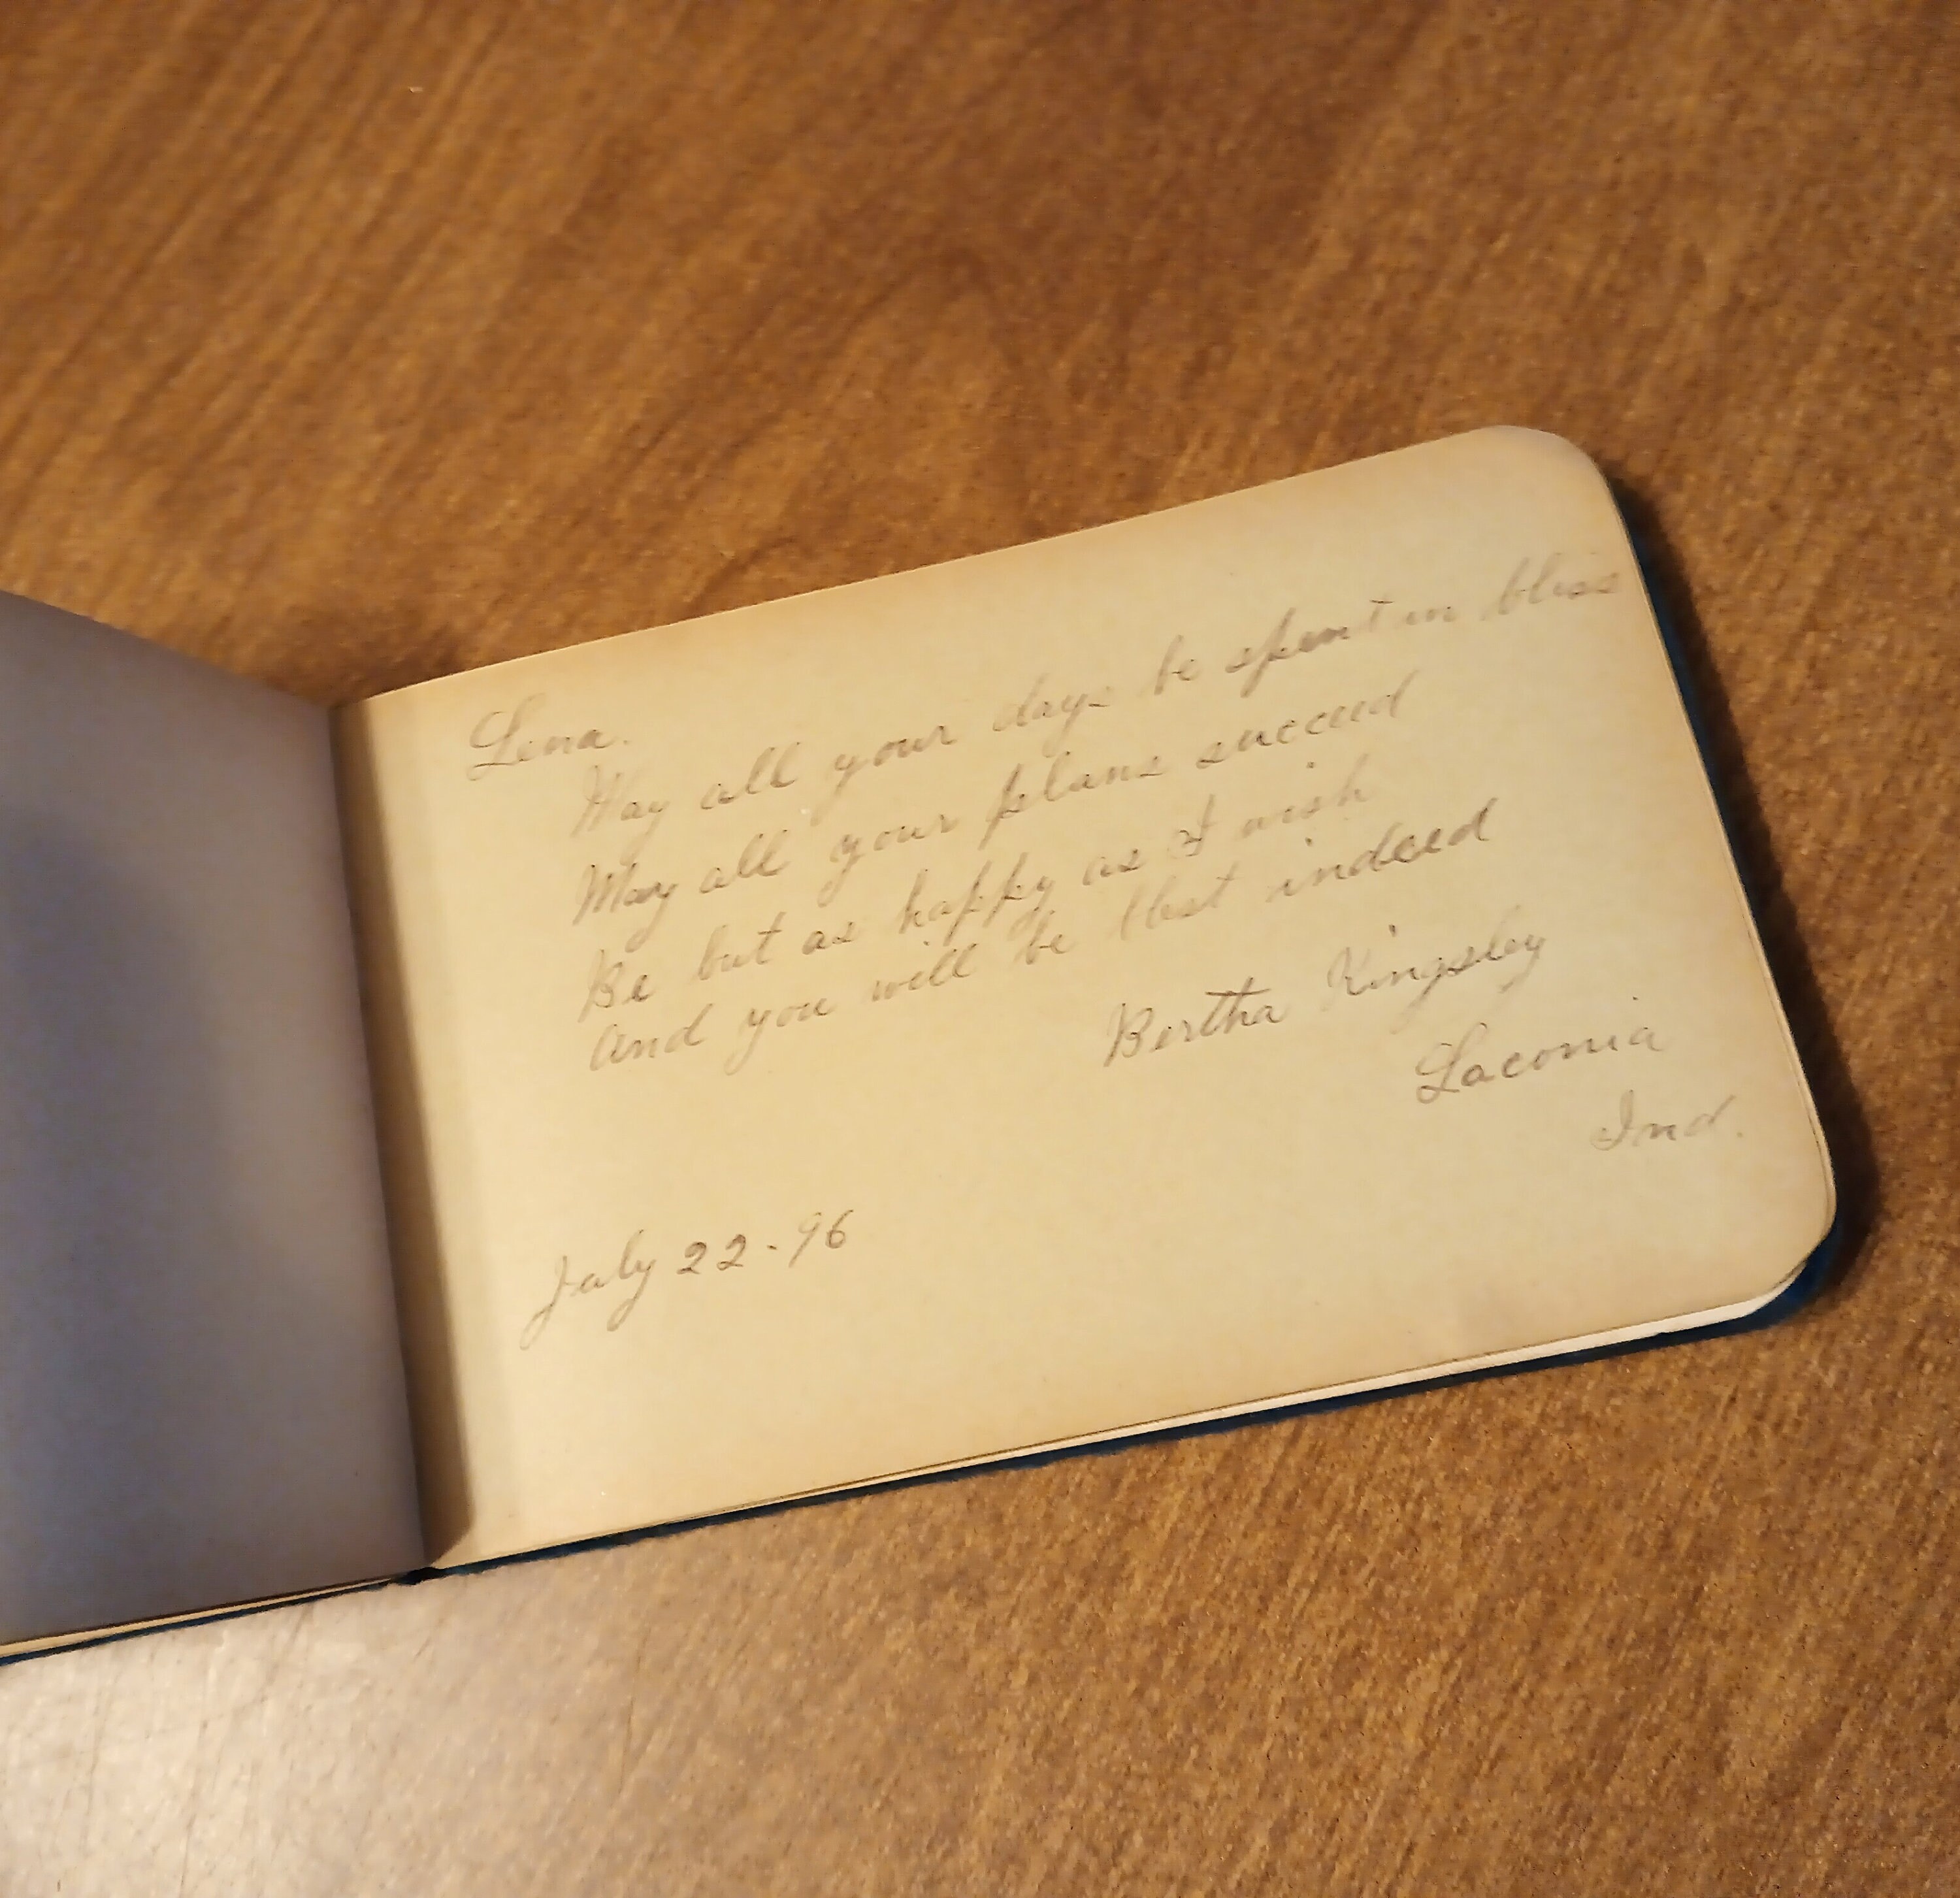 Lena.
May all your days be spent in bliss
May all your plans succeed
Be but as happy as I wish
And you will be blest indeed
Bertha Kingsley
Laconia
Ind.
July 22-96